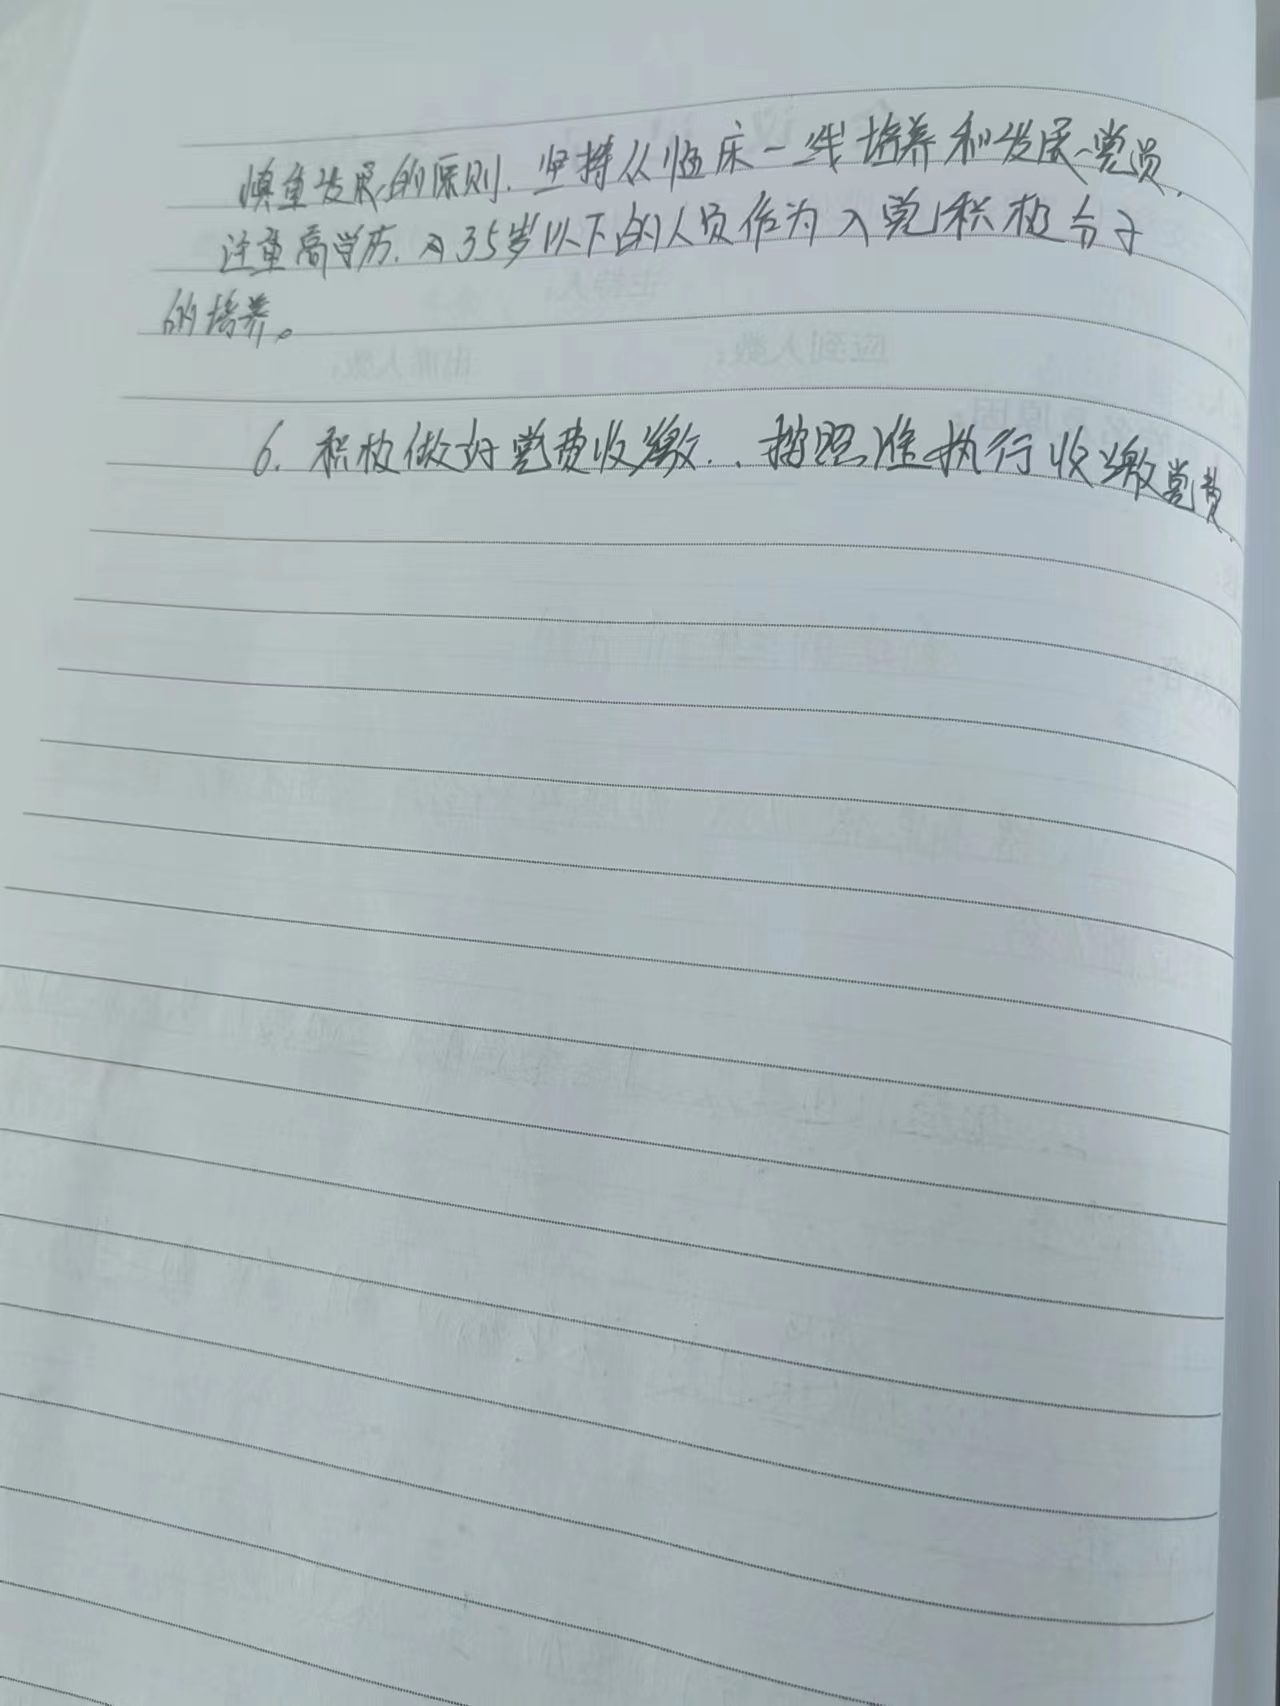 慎重发展的原则.坚持从临床一线培养和发展党员,
注重高学历.35岁以下的人员作为入党积极分子
的培养。
6.积极做好党费收缴..按照准执行收缴党费.
主持人:
应到人数:
出席人数: